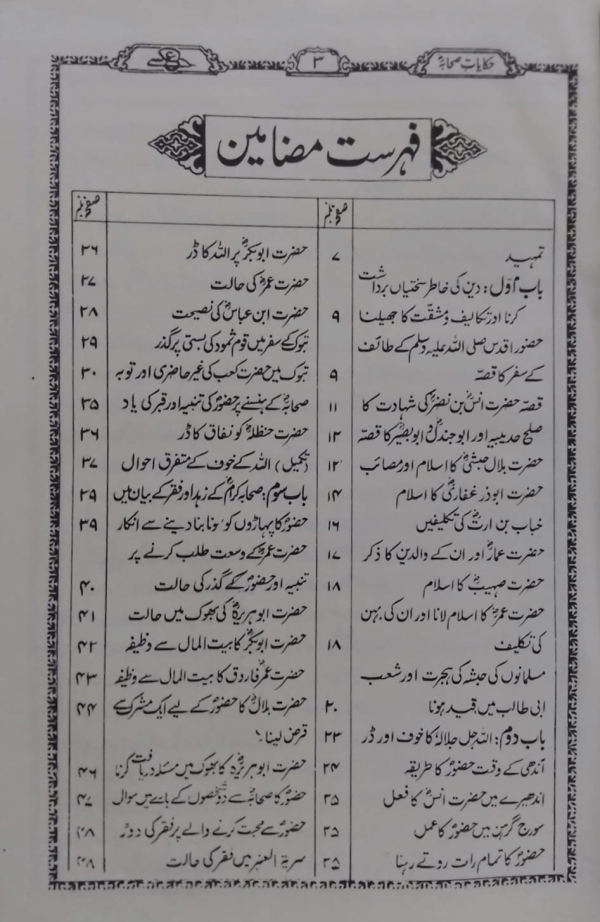 حکایاتِ صحابہؓ
۳
فہرست مضامین
صفحہ نمبر
تمہید ۷
باب اوّل: دین کی خاطر سختیاں برداشت
کرنا اور تکالیف و مشقّت کا جھیلنا ۹
حضورِ اقدس صلی اللہ علیہ وسلم کے طائف
کے سفر کا قصّہ ۹
قصّہ حضرت انسؓ بن نضرؓ کی شہادت کا ۱۱
صلح حدیبیہ اور ابوجندلؓ و ابوبصیرؓ کا قصّہ ۱۲
حضرت بلال حبشیؓ کا اسلام اور مصائب ۱۲
حضرت ابوذر غفاریؓ کا اسلام ۱۴
خباب بن ارتؓ کی تکلیفیں ۱۶
حضرت عمارؓ اور ان کے والدین کا ذکر ۱۷
حضرت صہیبؓ کا اسلام ۱۸
حضرت عمرؓ کا اسلام لانا اور ان کی بہن
کی تکلیف ۱۸
مسلمانوں کی حبشہ کی ہجرت اور شعب
ابی طالب میں قید ہونا ۲۰
باب دوم: اللہ جل جلالہٗ کا خوف اور ڈر ۲۳
آندھی کے وقت حضورؐ کا طریقہ ۲۴
اندھیرے میں حضرت انسؓ کا فعل ۲۵
سورج گرہن میں حضورؐ کا عمل ۲۵
حضورؐ کا تمام رات روتے رہنا ۲۵
صفحہ نمبر
حضرت ابوبکرؓ پر اللہ کا ڈر ۲۶
حضرت عمرؓ کی حالت ۲۷
حضرت ابن عباسؓ کی نصیحت ۲۸
تبوک کے سفر میں قوم ثمود کی بستی پر گذر ۲۹
تبوک میں حضرت کعبؓ کی غیر حاضری اور توبہ ۳۰
صحابہؓ کے ہنسنے پر حضورؐ کی تنبیہ اور قبر کی یاد ۳۵
حضرت حنظلہؓ کو نفاق کا ڈر ۳۶
(تکمیل) اللہ کے خوف کے متفرق احوال ۳۷
باب سوم: صحابہ کرامؓ کے زہد اور فقر کے بیان میں ۳۹
حضورؐ کا پہاڑوں کو سونا بنا دینے سے انکار ۳۹
حضرت عمرؓ کے وسعت طلب کرنے پر
تنبیہ اور حضورؐ کے گذر کی حالت ۴۰
حضرت ابوہریرہؓ کی بھوک میں حالت ۴۱
حضرت ابوبکرؓ کا بیت المال سے وظیفہ ۴۲
حضرت عمر فاروقؓ کا بیت المال سے وظیفہ ۴۳
حضرت بلالؓ کا حضورؐ کے لیے ایک مشرک سے ۴۴
قرض لینا
حضرت ابوہریرہؓ کا بھوک میں مسئلہ دریافت کرنا ۴۶
حضورؐ کا صحابہؓ سے دو شخصوں کے بارے میں سوال ۴۷
حضورؐ سے محبت کرنے والے پر فقر کی دوڑ ۴۸
سریۃ العنبر میں فقر کی حالت ۴۸